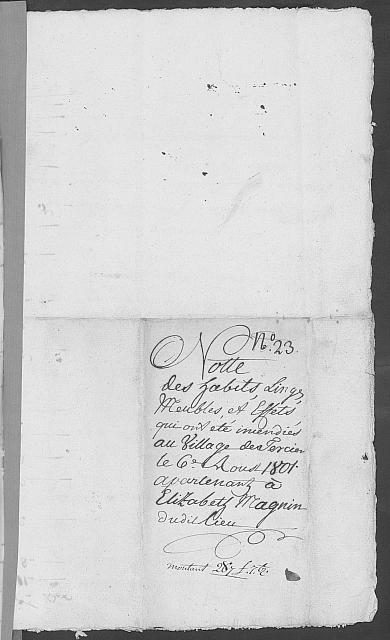 N.º 23.
Notte
des habits Linge
Meubles, et Effets
qui ont été incendiés
au Village de
le 6e Aoust 1801.
apartenanz à
Elizabetz Magnin
dudit Lieu
montant